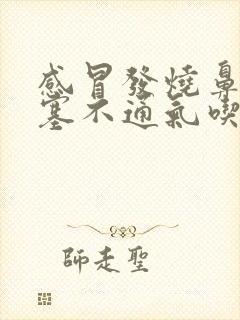 感冒發燒鼻
塞不通氣喫
師走聖